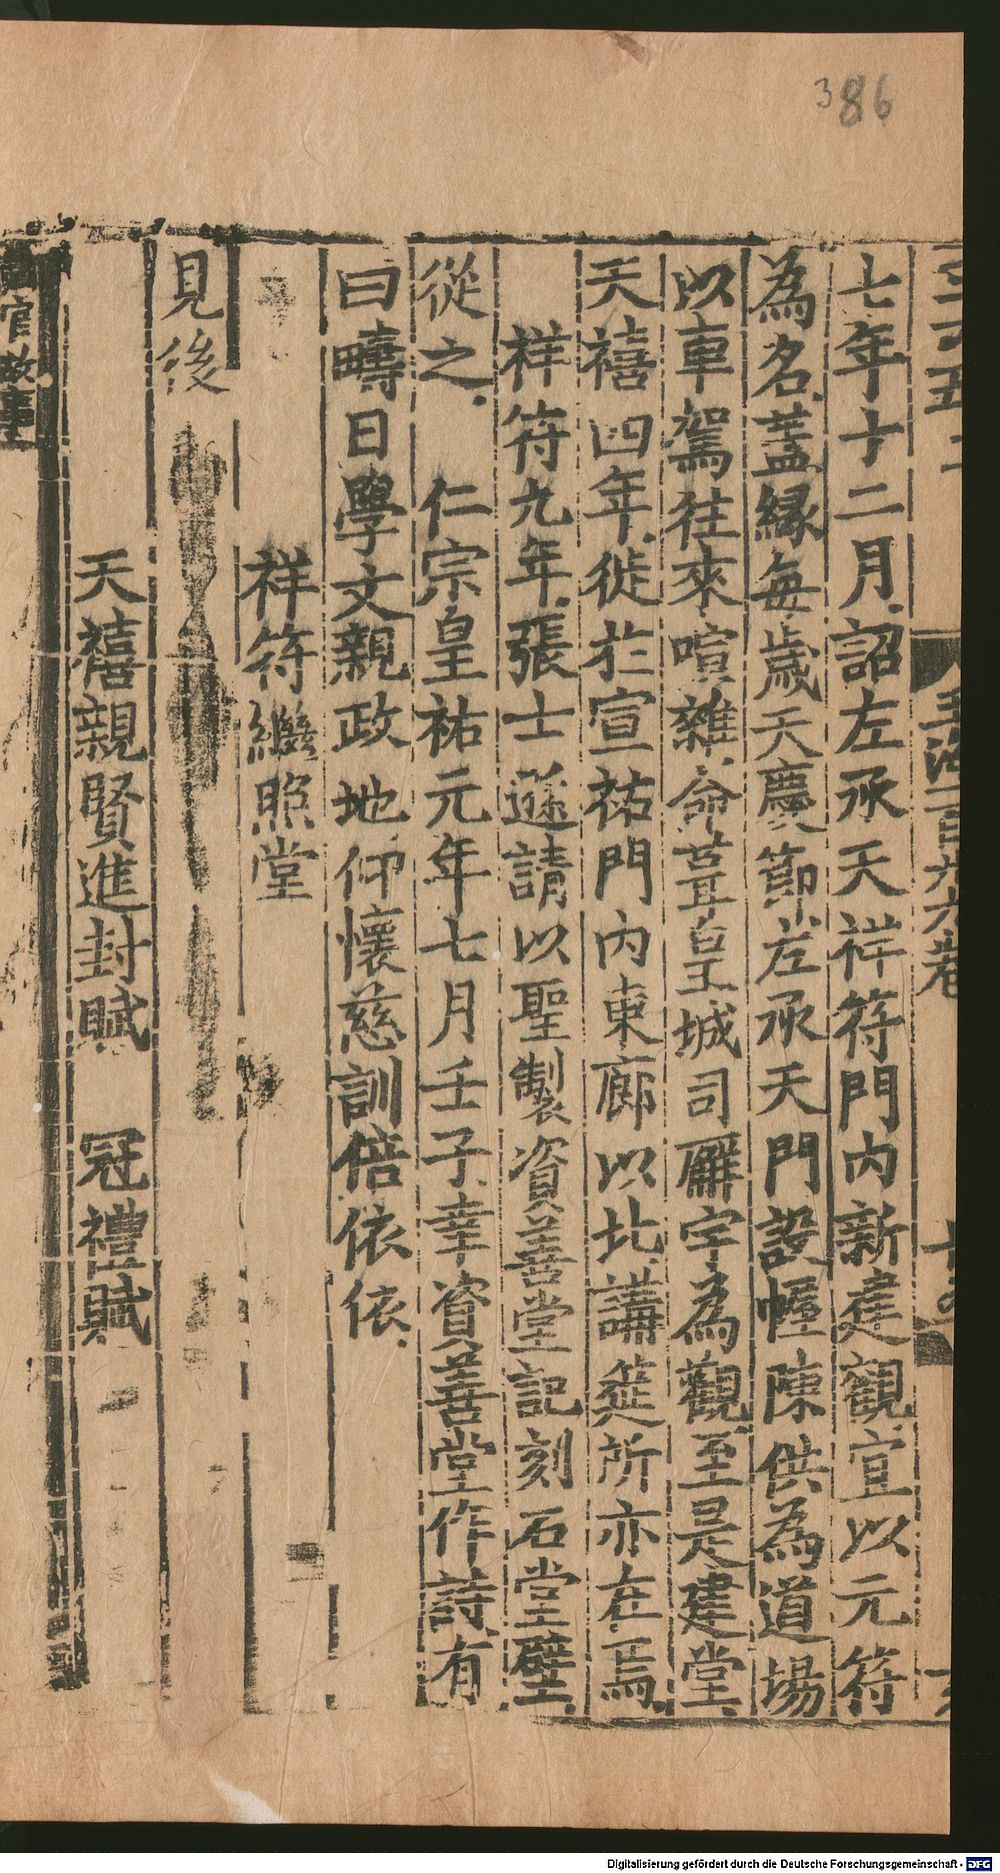 386
七年十二月詔左承天祥符門内新建觀宜以元符
為名蓋縁每歳天慶節左承天門設幄陳供為道場
以車駕往來喧雜命葺皇城司廨宇為觀至是建堂
天禧四年徙於宣祐門内東廊以北講筵所亦在焉
祥符九年張士遜請以聖製資善堂記刻石堂壁
從之　仁宗皇祐元年七月壬子幸資善堂作詩有
曰疇日學文親政地仰懷慈訓倍依依
祥符繼照堂
見後
天禧親賢進封賦　冠禮賦
Digitalisierung gefördert durch die Deutsche Forschungsgemeinschaft - DFG